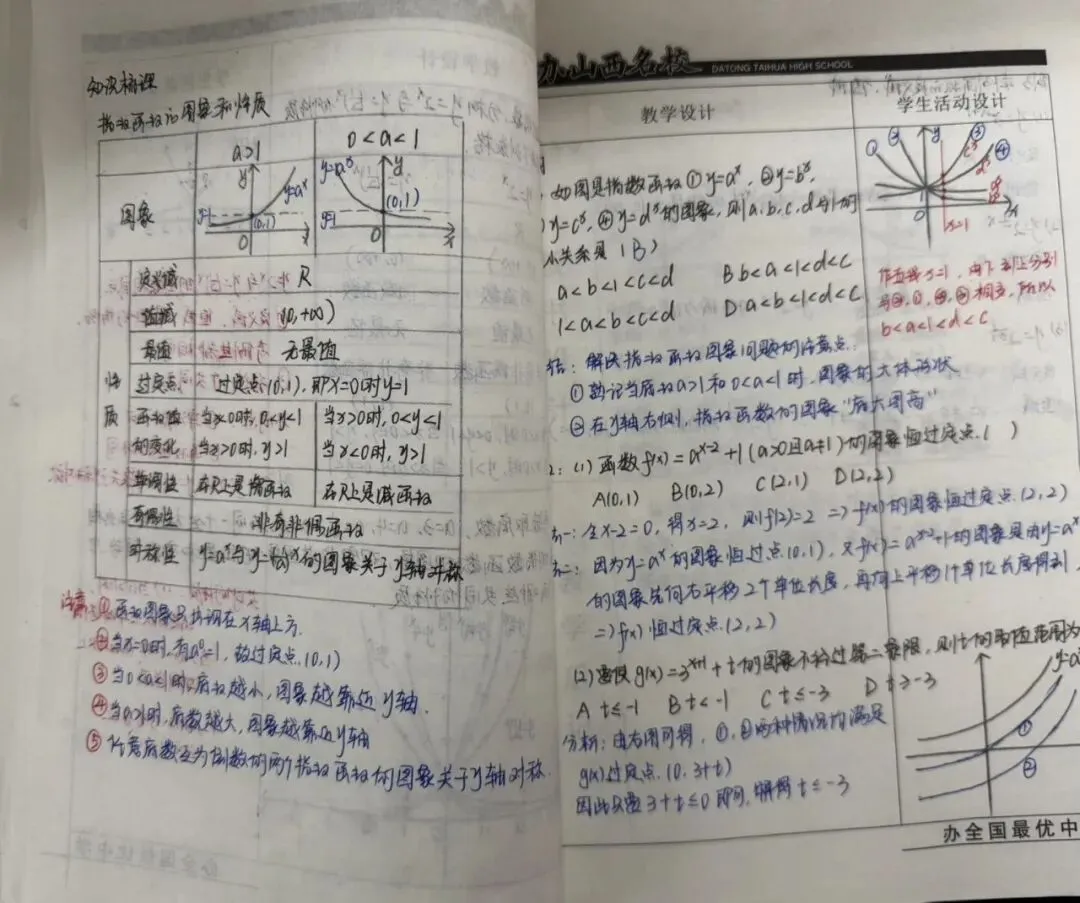 知识梳理
指数函数的图象和性质
a>1
0<a<1
图象
y
y=a^x
y=1
(0,1)
O
x
y=a^x
y
y=1
(0,1)
O
x
性质
定义域 R
值域 (0,+∞)
最值 无最值
过定点 过定点(0,1),即x=0时y=1
函数值的变化
当x<0时,0<y<1
当x>0时,y>1
当x>0时,0<y<1
当x<0时,y>1
单调性 在R上是增函数 在R上是减函数
奇偶性 非奇非偶函数
对称性 y=a^x与y= 的图象关于y轴对称
注意:① 函数图象只出现在x轴上方.
②当x=0时,有a^0=1,故过定点(0,1)
③当0<a<1时,底数越小,图象越靠近y轴.
④当a>1时,底数越大,图象越靠近y轴
⑤ 底数互为倒数的两个指数函数的图象关于y轴对称.
办山西名校
DATONG TAIHUA HIGH SCHOOL
教学设计
学生活动设计
如图是指数函数①y=a^x,②y=b^x,
y=c^x,④y=d^x的图象,则a,b,c,d与1的
小关系是(B)
a<b<1<c<d B b<a<1<d<c
1<a<b<c<d D a<b<1<d<c
① ② y ③ ④
c^x
d^x
x
x=1
作直线x=1,由下到上分别
与②,①,④,③相交,所以
b<a<1<d<c
结:解决指数函数图象问题的注意点:
①熟记当底数a>1和0<a<1时,图象的大体形状
②在y轴右侧,指数函数的图象"底大图高"
2:(1)函数f(x)=a^x-2+1(a>0且a≠1)的图象恒过定点( )
A(0,1) B(0,2) C(2,1) D(2,2)
法一:令x-2=0,得x=2,则f(2)=2 ⇒f(x)的图象恒过定点(2,2)
法二:因为y=a^x的图象恒过点(0,1),又f(x)=a^x-2+1的图象是由y=a^x
的图象先向右平移2个单位长度,再向上平移1个单位长度得到.
⇒f(x)恒过定点(2,2)
(2)要使g(x)=3^x+1+t的图象不经过第二象限,则t的取值范围为
A t≤-1 B t<-1 C t≤-3 D t≥-3
分析:由右图可得,①,②两种情况均满足
g(x)过定点(0,3+t)
因此只需3+t≤0即可,解得t≤-3
①
②
办全国最优中